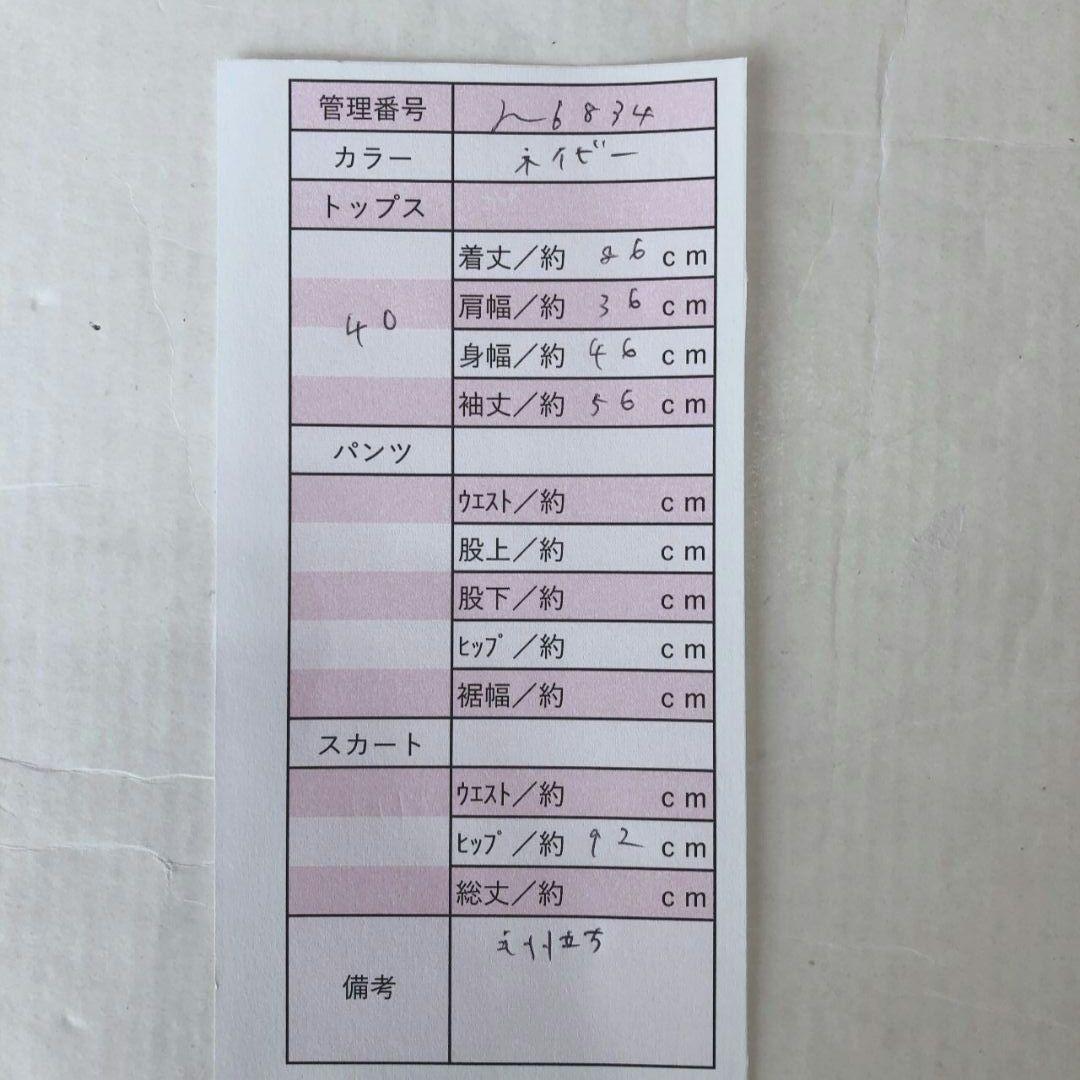 管理番号 6834
カラー ネイビー
トップス
40
着丈／約 86 cm
肩幅／約 36 cm
身幅／約 46 cm
袖丈／約 56 cm
パンツ
ｳｴｽﾄ／約 cm
股上／約 cm
股下／約 cm
ﾋｯﾌﾟ／約 cm
裾幅／約 cm
スカート
ｳｴｽﾄ／約 cm
ﾋｯﾌﾟ／約 92 cm
総丈／約 cm
備考